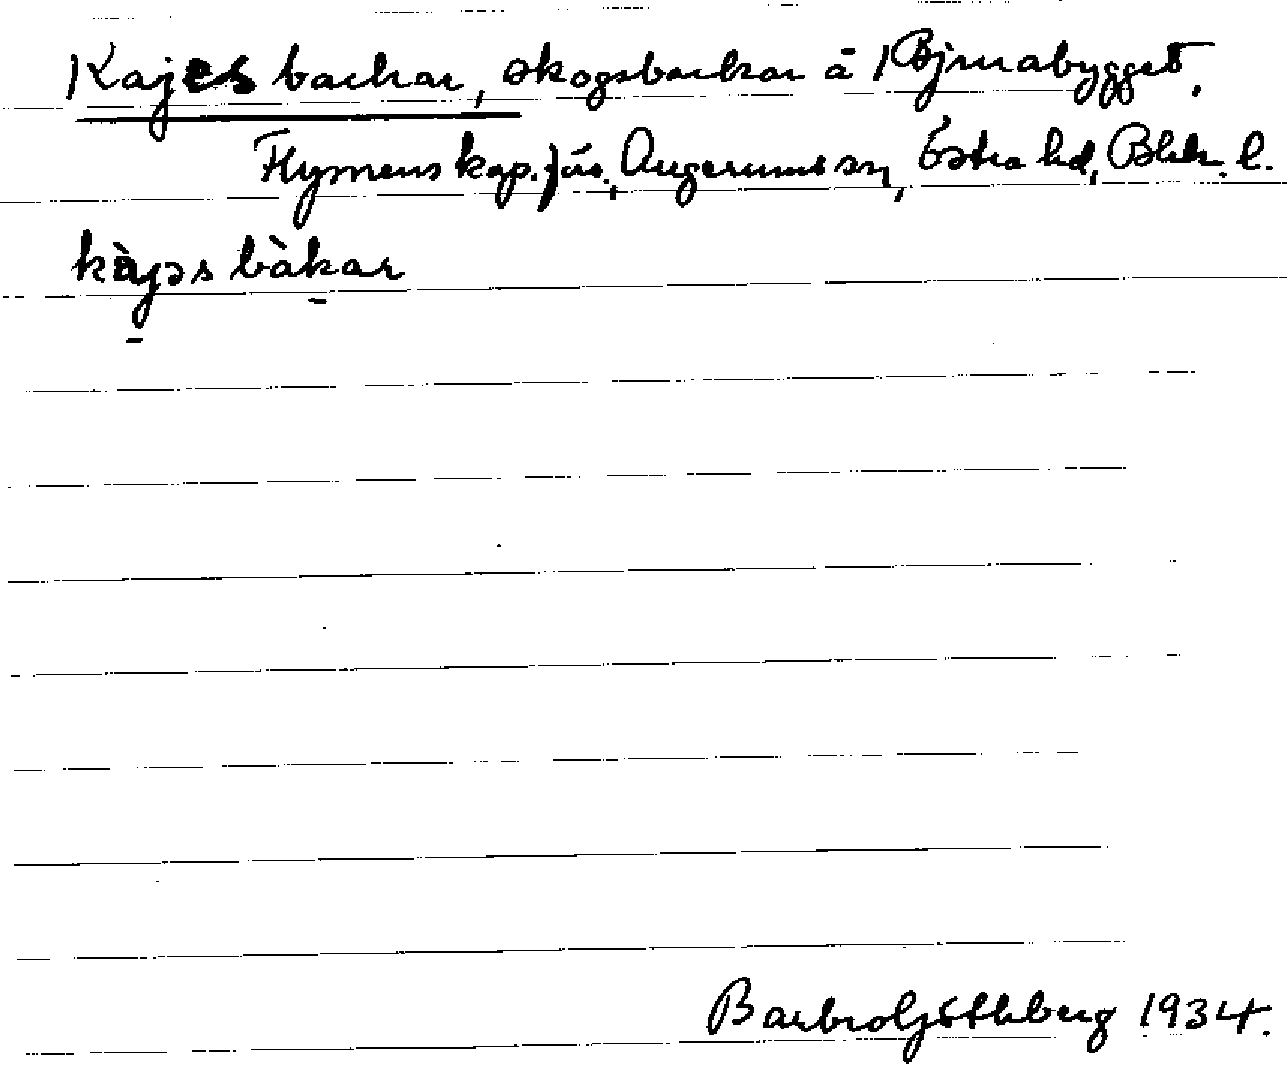 Kajes backar, skogsbackar å Bjrnabygget.
Flymens kap. förs., Augerums sn, Östra hd, Blek. l.
kàjəs bàkar
Barbro Ljsthberg 1934.